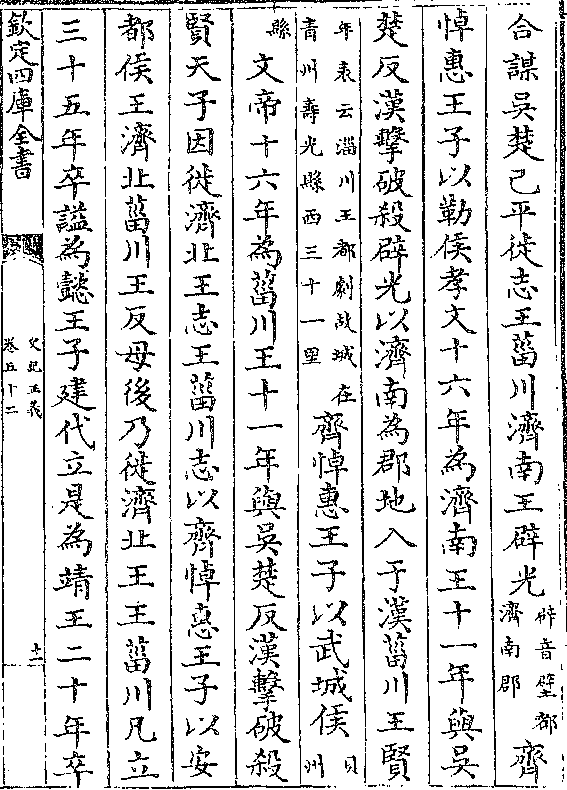 合謀吳楚已平徙志王菑川濟南王辟光辟音壁都濟南郡齊
悼惠王子以勒侯孝文十六年為濟南王十一年與吳
楚反漢擊破殺辟光以濟南為郡地入于漢菑川王賢
年表云淄川王都劇故城在青州壽光縣西三十一里齊悼惠王子以武城侯貝州
縣文帝十六年為菑川王十一年與吳楚反漢擊破殺
賢天子因徙濟北王志王菑川志以齊悼惠王子以安
都侯王濟北菑川王反母後乃徙濟北王王菑川凡立
三十五年卒諡為懿王子建代立是為靖王二十年卒
欽定四庫全書
史記正義
卷五十二